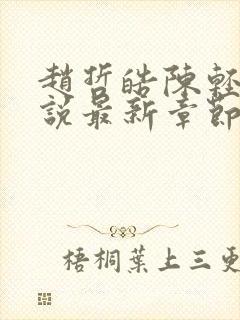 趙哲皓陳輕
說最新章節
梧桐葉上三更